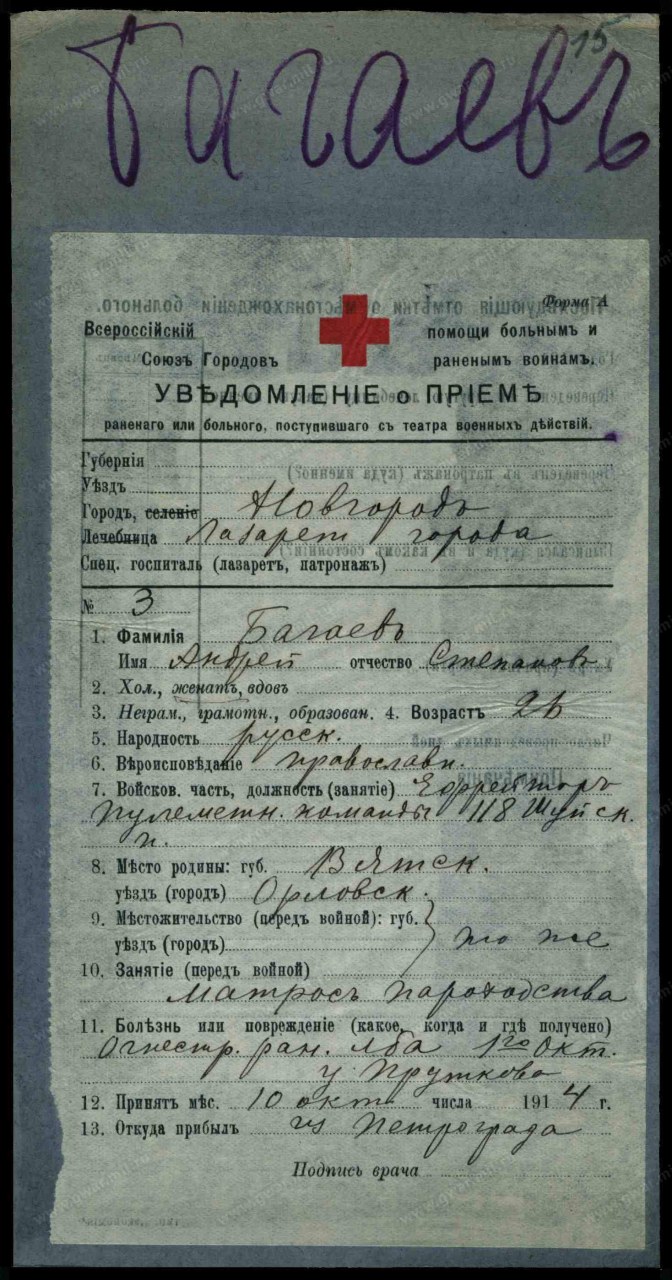 15
Багаевъ
Форма А
Всероссійскій
Союзъ Городовъ
помощи больнымъ и
раненымъ воинамъ.
УВѢДОМЛЕНІЕ о ПРІЕМѢ
раненаго или больного, поступившаго съ театра военныхъ дѣйствій.
Губернія
Уѣздъ
Городъ, селеніе Новгородъ
Лечебница Лазарет города
Спец. госпиталь (лазаретъ, патронажъ)
№ 3
1. Фамилія Багаевъ
Имя Андрей отчество Степановъ
2. Хол., женатъ, вдовъ
3. Неграм., грамотн., образован. 4. Возрастъ 26
5. Народность русск.
6. Вѣроисповѣданіе православн.
7. Войсков. часть, должность (занятіе) Ефрейторъ
пулеметн. команды 118 Шуйск.
п.
8. Мѣсто родины: губ. Вятск.
уѣздъ (городъ) Орловск.
9. Мѣстожительство (передъ войной): губ.
уѣздъ (городъ) то же
10. Занятіе (передъ войной)
матросъ пароходства
11. Болѣзнь или поврежденіе (какое, когда и гдѣ получено)
Огнестр. ран. лба 1го Окт.
у Прушкова
12. Принятъ мѣс. 10 окт. числа 1914 г.
13. Откуда прибылъ из Петрограда
Подпись врача